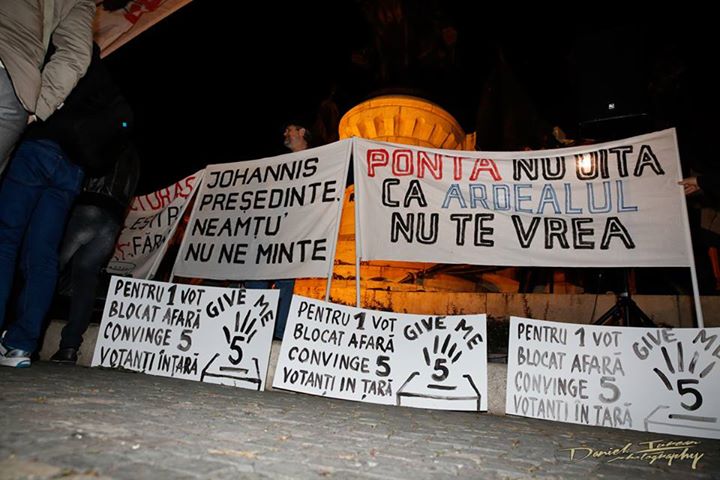 JOHANNIS
PREȘEDINTE,
NEAMȚU'
NU NE MINTE
PONTA NU UITA
CA ARDEALUL
NU TE VREA
PENTRU 1 VOT
BLOCAT AFARĂ
CONVINGE 5
VOTANȚI ÎN ȚARĂ
GIVE ME
5
PENTRU 1 VOT
BLOCAT AFARĂ
CONVINGE 5
VOTANȚI IN ȚARĂ
GIVE ME
5
PENTRU 1 VOT
BLOCAT AFARĂ
CONVINGE 5
VOTANȚI ÎN ȚARĂ
GIVE ME
5
photography